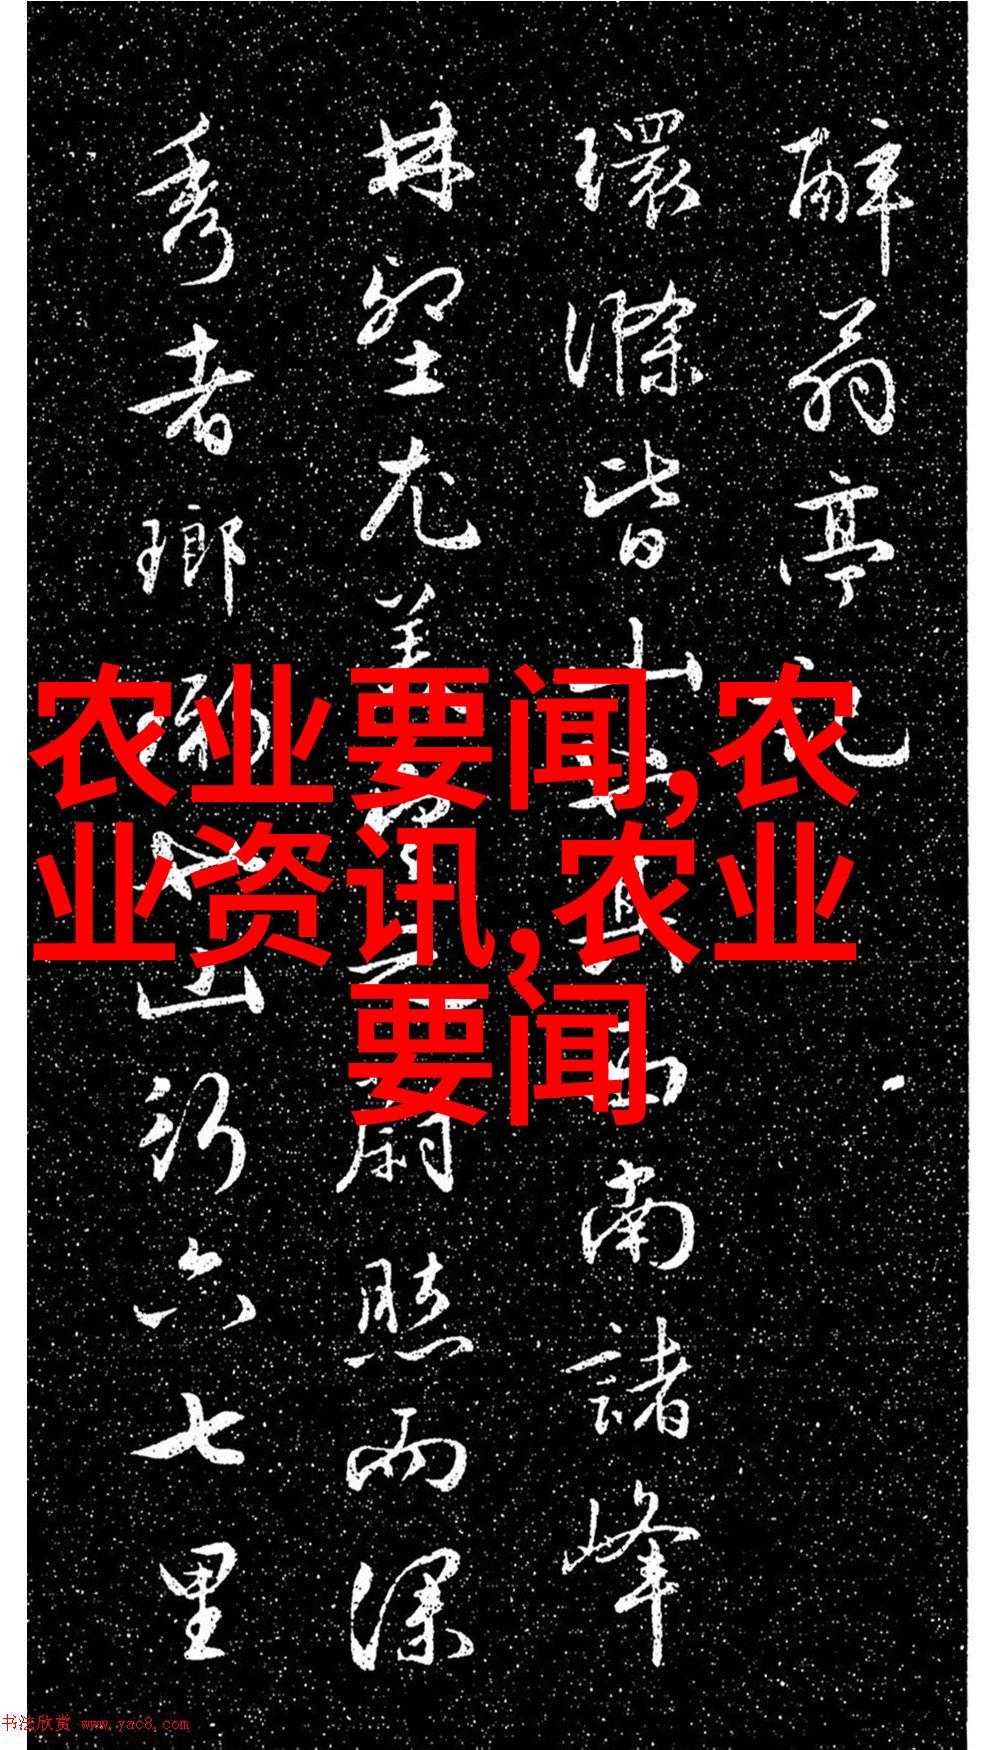 醉翁亭记
環滁皆山也其西南諸峰
林壑尤美望之蔚然而深
秀者瑯琊也山行六七里
农业要闻,农
业资讯,农业
要闻
书法欣赏 www.yac8.com